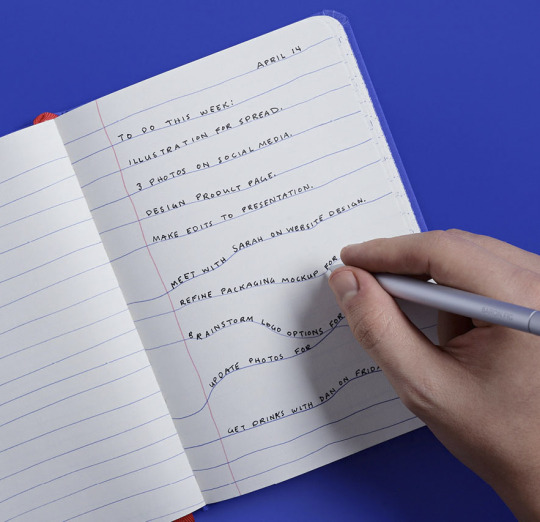 APRIL 14
TO DO THIS WEEK:
ILLUSTRATION FOR SPREAD.
3 PHOTOS ON SOCIAL MEDIA.
DESIGN PRODUCT PAGE.
MAKE EDITS TO PRESENTATION.
MEET WITH SARAH ON WEBSITE DESIGN.
REFINE PACKAGING MOCKUP FOR
BRAINSTORM LOGO OPTIONS FOR
UPDATE PHOTOS FOR
GET DRINKS WITH DAN ON